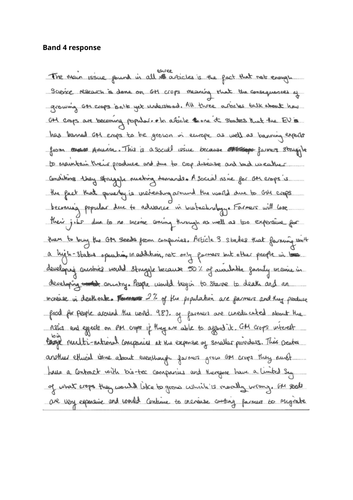 Band 4 response
The main issue found in all three articles is the fact that not enough
Science research is done on GM crops meaning that the consequences of
growing GM crops isn't yet understood. All three articles talk about how
GM crops are becoming popular. In article one it states that the EU
has banned GM crops to be grown in europe as well as banning exports
from America. This is a social issue because farmers struggle
to maintain their produce and due to crop disease and bad weather
conditions they struggle meeting demands. A social issue for GM crops is
the fact that poverty is increasing around the world due to GM crops
becoming popular due to advances in biotechnology. Farmers will lose
their jobs due to no income coming through as well as too expensive for
them to buy the GM seeds from companies. Article 3 states that farming isn't
a high-status operation in addition, not only farmers but other people in
developing countries would struggle because 50% of available family income in
developing country. People would begin to starve to death and an
increase in death rate. 2% of the population are farmers and they produce
food for people around the world. 98% of farmers are uneducated about the
risks and effects on GM crops if they are able to afford it. GM crops interest
big multi-national companies at the expense of smaller providers. This creates
another ethical issue about eventhough farmers grow GM crops they must
have a contract with bio-tec companies and therefore have a limited say
of what crops they would like to grow which is morally wrong. GM seeds
are very expensive and would continue to increase costing farmers to migrate